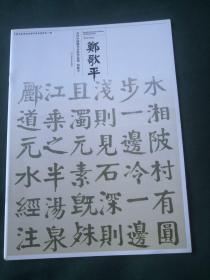 鄭歌平
水湘陂村有圓
步一邊冷一邊
淺則見石深則
且濁玄既殊則
江乘之半湯泉
酈道元水經注